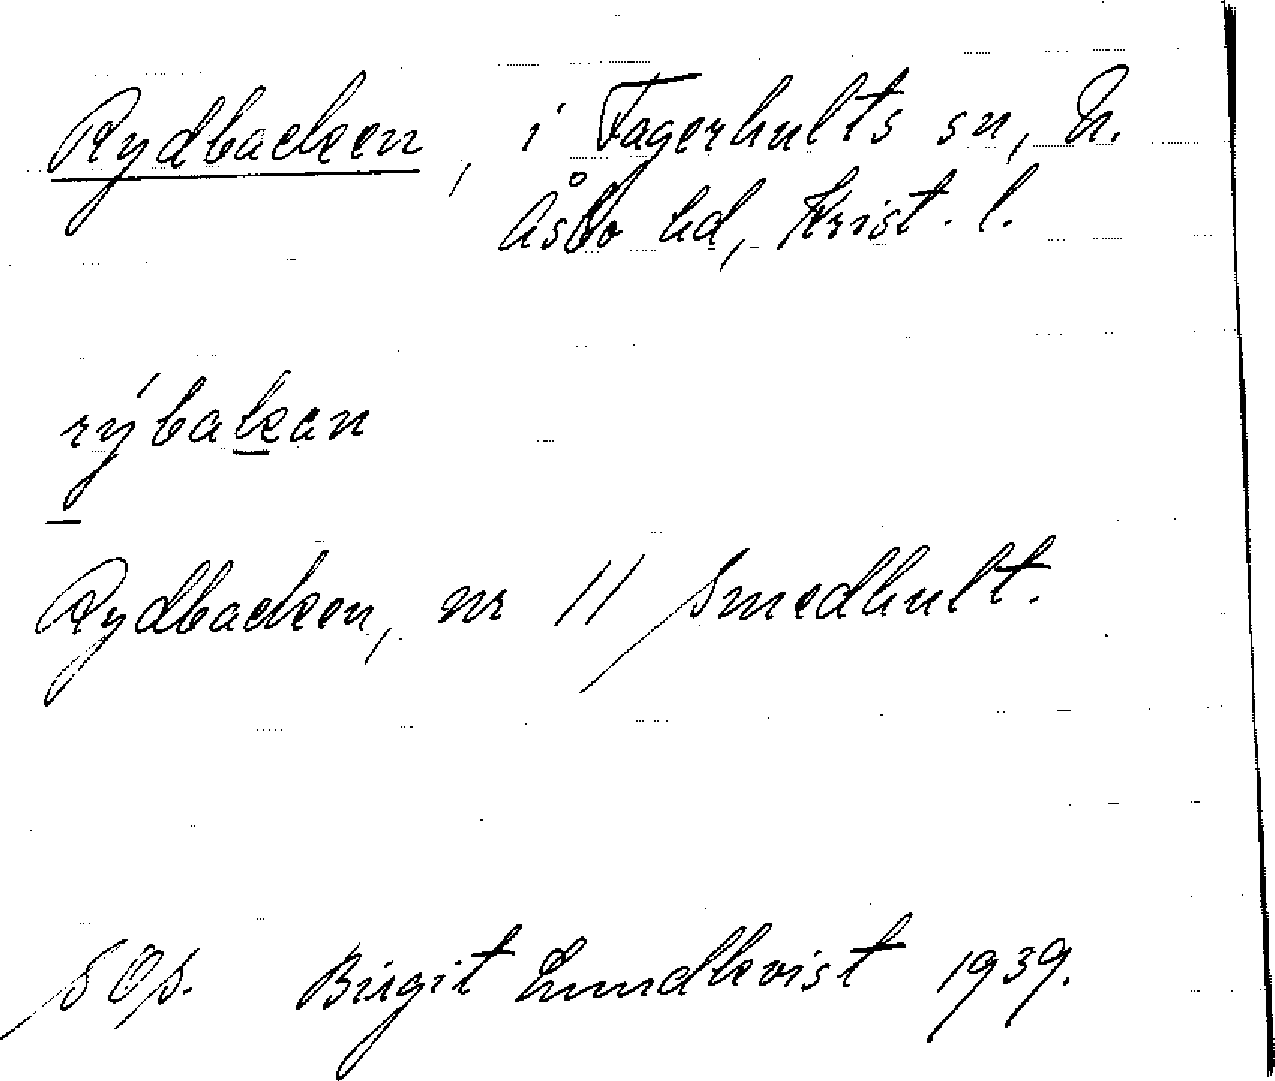 Rydbacken, i Fagerhults sn, N.
Åsbo hd, Krist. l.
rýbakan
Rydbacken, nr 11 Smedhult.
SOs. Birgit Lundkvist 1939.